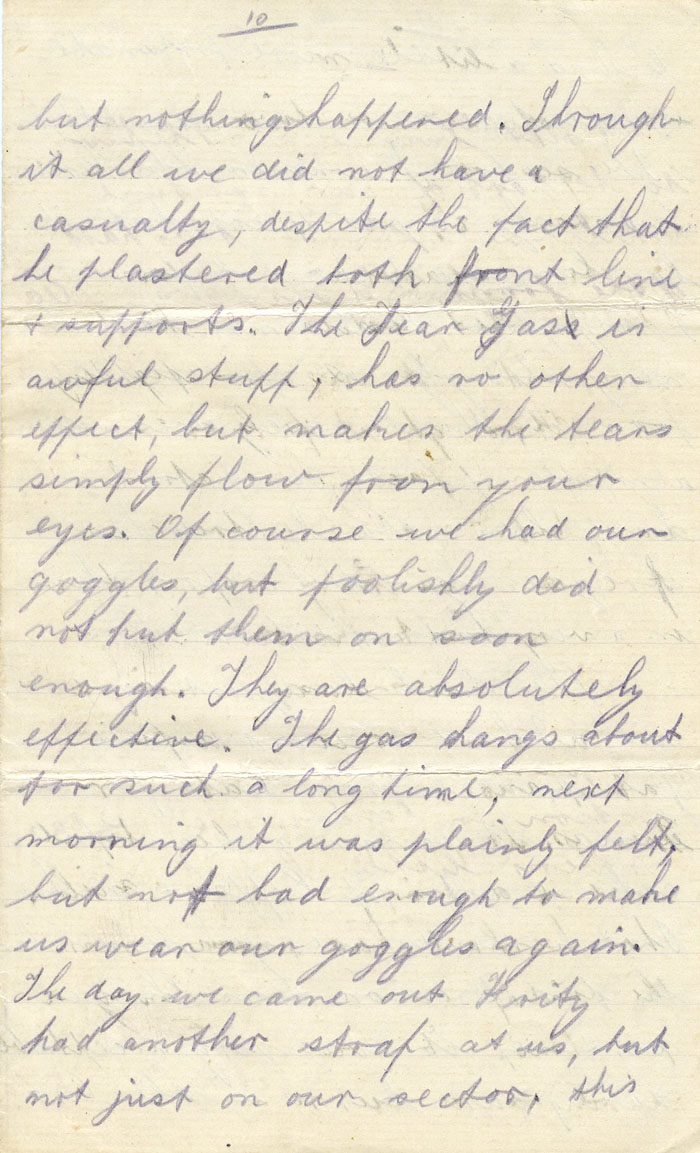 10
but nothing happened. Through
it all we did not have a
casualty, despite the fact that
he plastered both front line
+ supports. The Tear Gas is
awful stuff, has no other
effect, but makes the tears
simply flow from your
eyes. Of course we had our
goggles, but foolishly did
not put them on soon
enough. They are absolutely
effective. The gas hangs about
for such a long time, next
morning it was plainly felt,
but not bad enough to make
us wear our goggles again.
The day we came out Fritz
had another straf at us, but
not just on our sector, this